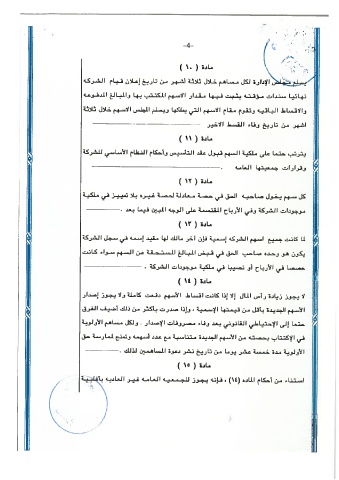 -4-
مادة ( ١٠ )
يسلم مجلس الإدارة لكل مساهم خلال ثلاثة أشهر من تاريخ إعلان قيام الشركه
نهائيا سندات مؤقته يثبت فيها مقدار الاسهم المكتتب بها والمبالغ المدفوعه
والاقساط الباقيه وتقوم مقام الاسهم التي يملكها ويسلم المجلس الاسهم خلال ثلاثة
اشهر من تاريخ وفاء القسط الاخير
مادة ( ١١ )
يترتب حتما على ملكية السهم قبول عقد التأسيس وأحكام النظام الأساسي للشركة
وقرارات جمعيتها العامه .
مادة ( ١٢ )
كل سهم يخول صاحبه الحق في حصة معادلة لحصة غيره بلا تمييز في ملكية
موجودات الشركة وفي الأرباح المقتسمة على الوجه المبين فيما بعد .
مادة ( ١٣ )
لما كانت جميع اسهم الشركه إسمية فإن آخر مالك لها مقيد إسمه في سجل الشركة
يكون هو وحده صاحب الحق في قبض المبالغ المستحقة عن السهم سواء كانت
حصصا في الأرباح أو نصيبا في ملكية موجودات الشركة .
مادة ( ١٤ )
لا يجوز زيادة رأس المال إلا إذا كانت اقساط الأسهم دفعت كاملة ولا يجوز إصدار
الأسهم الجديدة بأقل من قيمتها الإسمية ، وإذا صدرت بأكثر من ذلك أضيف الفرق
حتما إلى الإحتياطي القانوني بعد وفاء مصروفات الإصدار . ولكل مساهم الأولوية
في الإكتتاب بحصته من الأسهم الجديدة متناسبة مع عدد أسهمه وتمنح لممارسة حق
الأولوية مدة خمسة عشر يوما من تاريخ نشر دعوة المساهمين لذلك .
مادة ( ١٥ )
استثناء من أحكام الماده (١٤) ، فإنه يجوز للجمعيه العامه غير العاديه بأغلبية